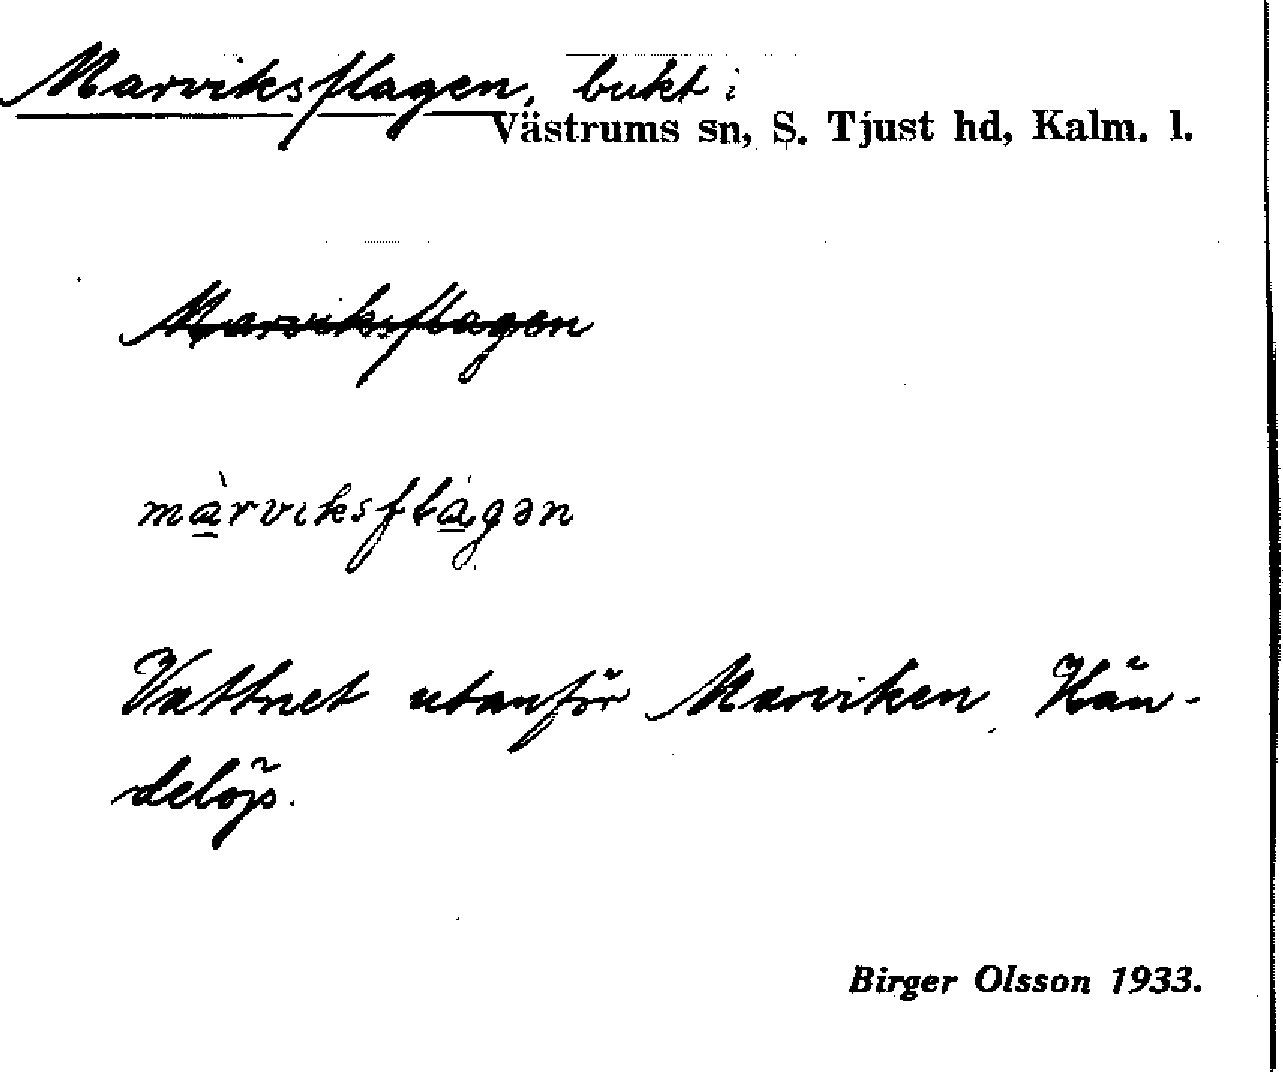 Marviksflagen, bukt i
Västrums sn, S. Tjust hd, Kalm. l.
Marviksflagen
màrviksflágən
Vattnet utanför Marviken, Hän-
delöp.
Birger Olsson 1933.